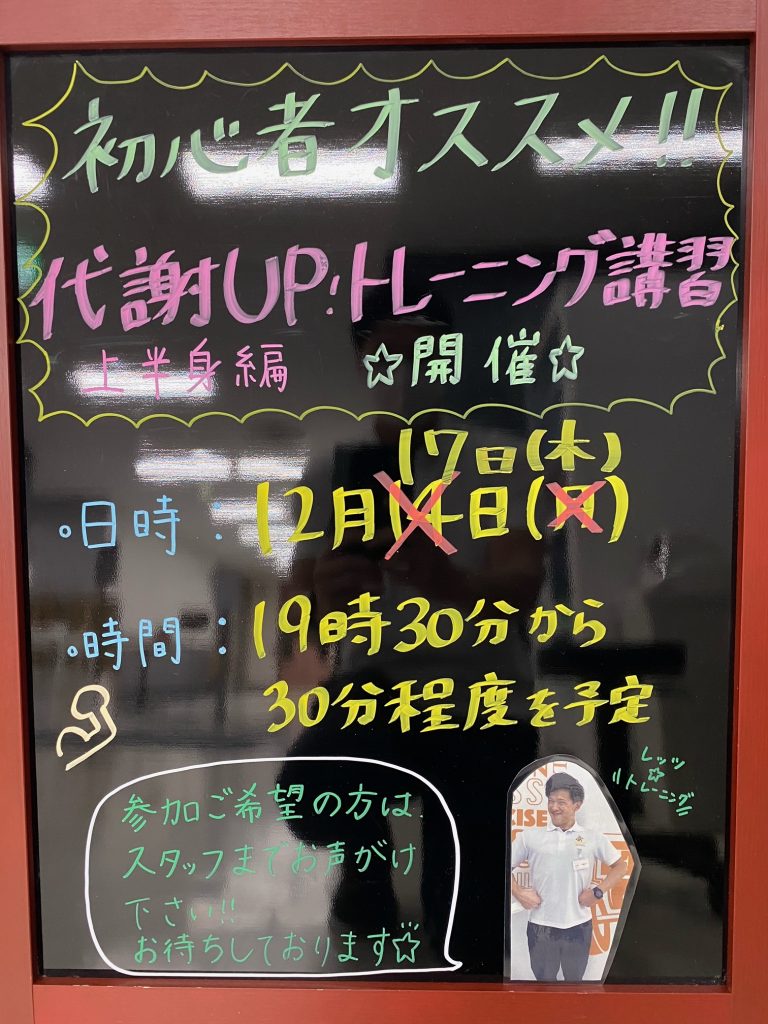 初心者オススメ!!
代謝UP!トレーニング講習
上半身編 ☆開催☆
17日(木)
。日時：12月14日(月)
。時間：19時30分から
30分程度を予定
参加ご希望の方は
スタッフまでお声がけ
下さい!!
お待ちしております☆
レッツ
☆
トレーニング